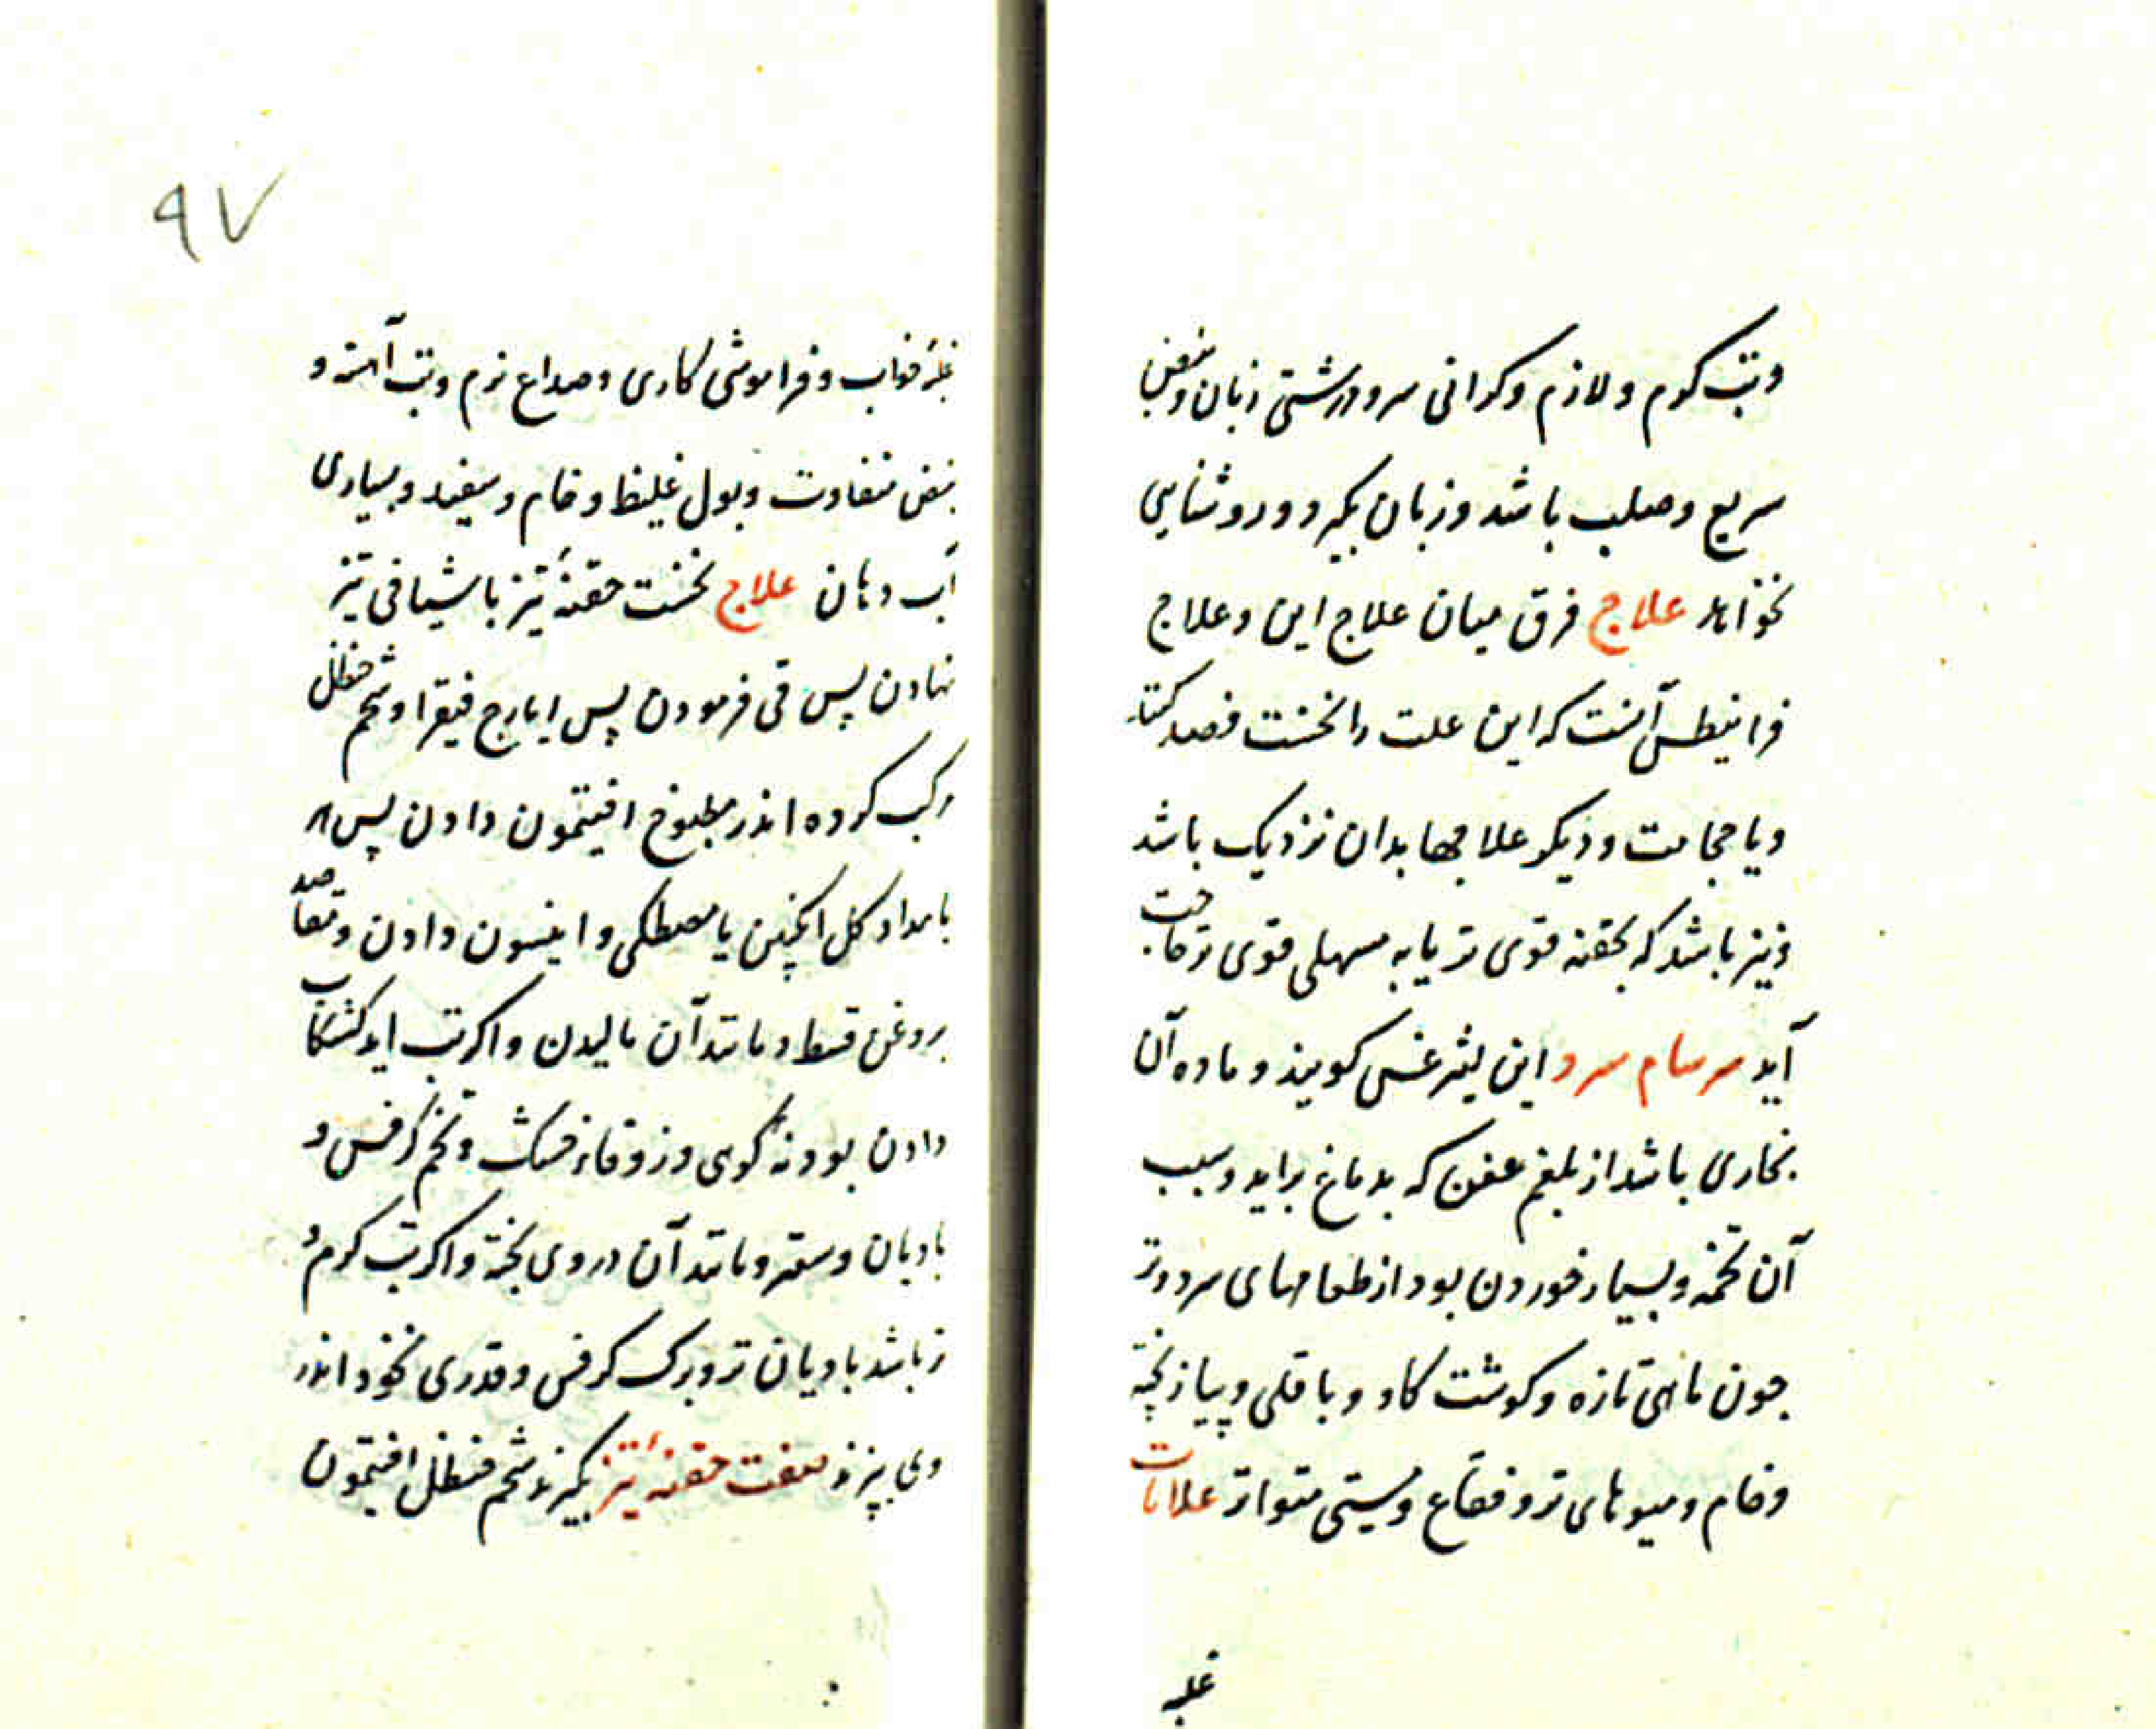 وتب کرم و لازم و کرانی سر و درشتی زبان و نبض
سریع و صلب باشد و زبان بکیرد و روشنایی
نخواهد علاج فرق میان علاج این و علاج
فرانیطس آنست که این علت را نخست فصد کنند
و یا حجامت و دیکر علاجها بدان نزدیک باشد
و نیز باشد که بحقنه قوی تر یا به مسهلی قوی تر حاجت
آید سرسام سرد این لیثرغس کویند و ماده آن
بخاری باشد از بلغم عفن که بدماغ براید و سبب
آن تخمه و بسیار خوردن بود از طعامهای سرد و تر
جون ماهی تازه و کوشت کاو و باقلی و پیاز پخته
و خام و میوهای تر و فقاع و مستی متواتر علامات
غلبه
۹۷
غلبهٔ خواب و فراموشی کاری و صداع نرم و تب آهسته و
نبض متفاوت و بول غلیظ و خام و سفید و بسیاری
آب دهان علاج نخست حقنهٔ تیز با شیافی تیز
نهادن پس قی فرمودن پس ایارج فیقرا و شحم حنظل
مرکب کرده اندر مطبوخ افیتمون دادن پس هر
بامداد کل انکبین با مصطکی و انیسون دادن و مقاصد
بروغن قسط و مانند آن مالیدن و اکر تب اید کشکاب
دادن بودنهٔ کوهی و زوفاء خشک و تخم کرفس و
بادیان و سعتر و مانند آن در وی پخته و اکر تب کرم و
تر باشد بادیان تر و برک کرفس و قدری نخود اندر
وی پزند صفت حقنهٔ تیز بکیرند شحم حنظل افیتمون